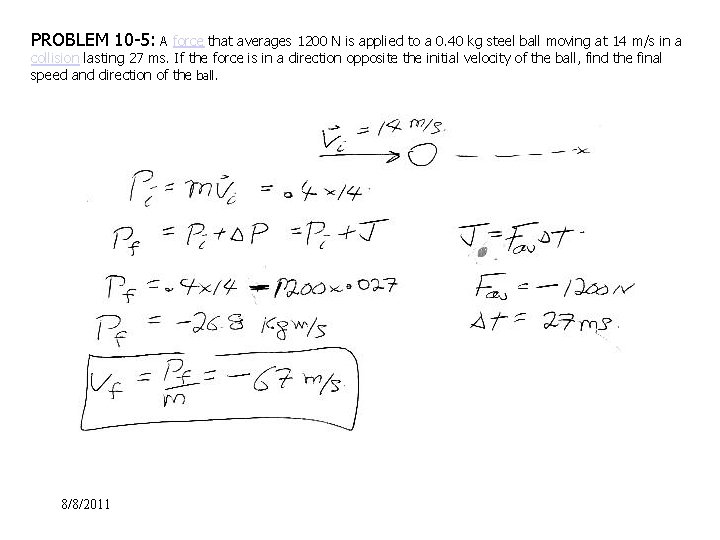 PROBLEM 10-5: A force that averages 1200 N is applied to a 0.40 kg steel ball moving at 14 m/s in a
collision lasting 27 ms. If the force is in a direction opposite the initial velocity of the ball, find the final
speed and direction of the ball.
V⃗i = 14 m/s.
Pi = mv⃗i = .4 x 14.
Pf = Pi + ΔP = Pi + J
J = Fav Δt.
Pf = .4x14 - 1200x.027
Fav = -1200N
Pf = -26.8 Kgm/s
Δt = 27ms.
Vf = Pf/m = -67 m/s.
8/8/2011